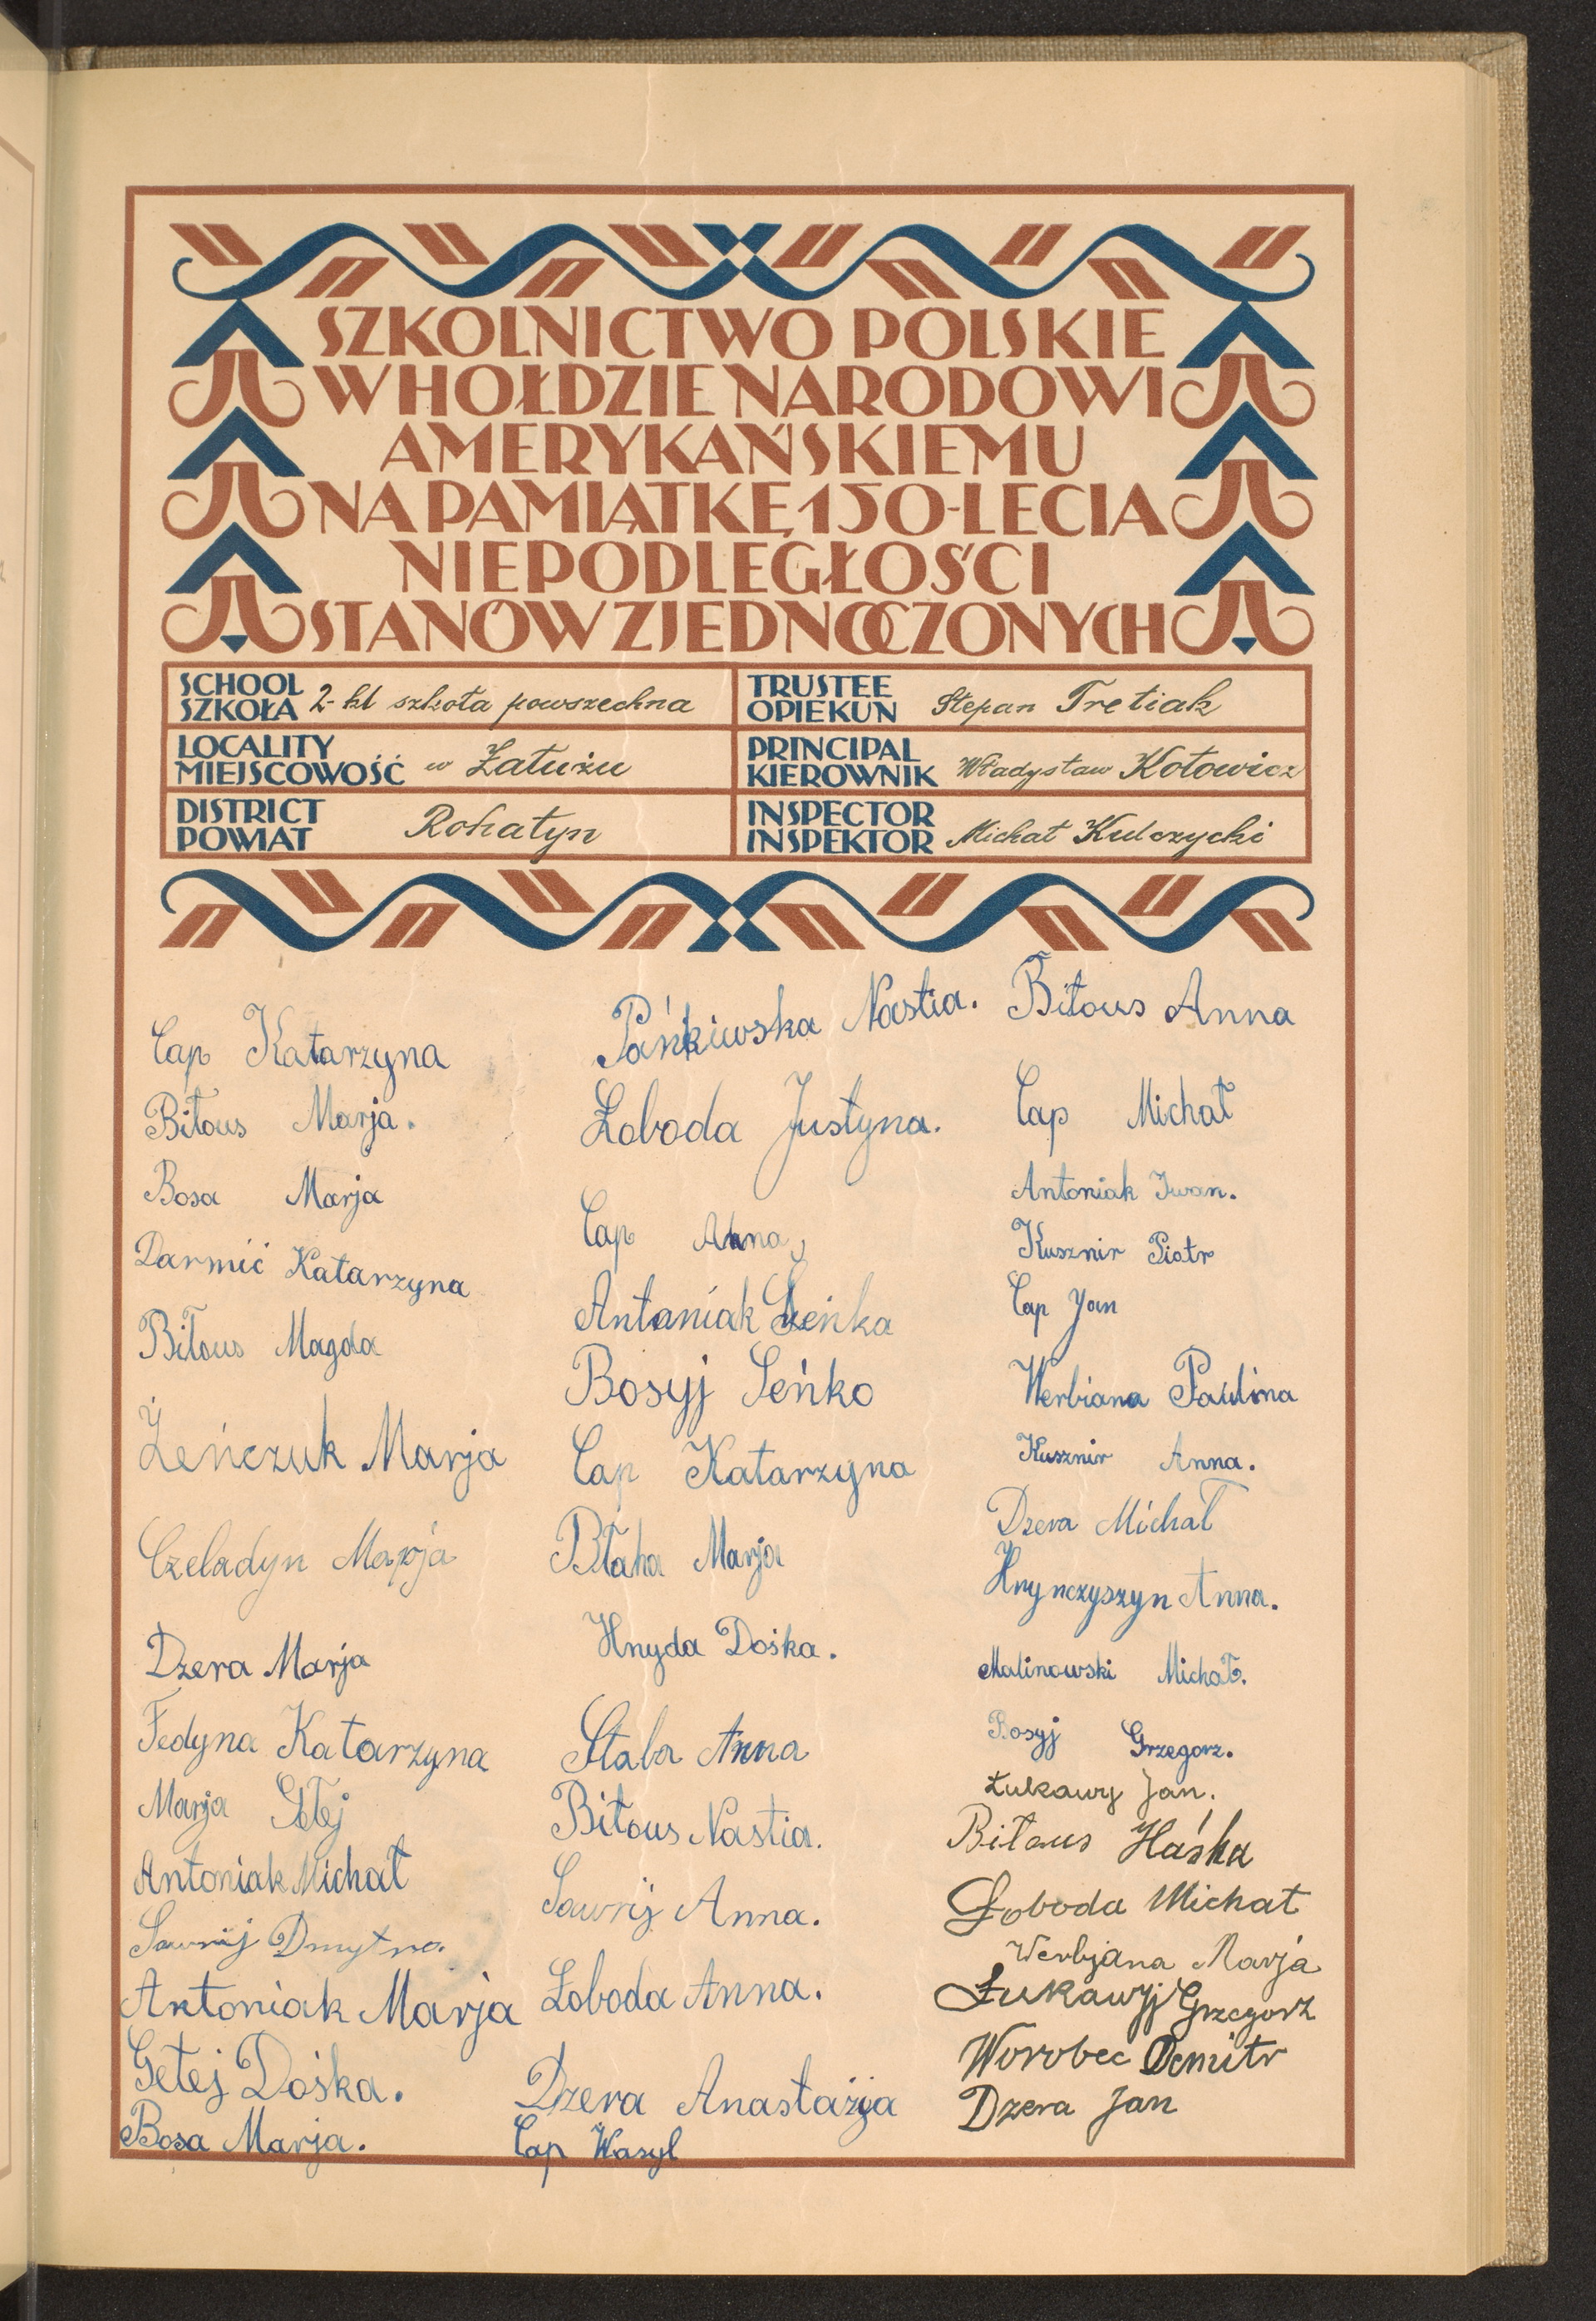 SZKOLNICTWO POLSKIE
W HOŁDZIE NARODOWI
AMERYKAŃSKIEMU
NA PAMIĄTKĘ 150-LECIA
NIEPODLEGŁOŚCI
STANÓW ZJEDNOCZONYCH
SCHOOL
SZKOŁA
2-kl szkoła powszechna
TRUSTEE
OPIEKUN
Stepan Tretiak
LOCALITY
MIEJSCOWOŚĆ
w Załużu
PRINCIPAL
KIEROWNIK
Władysław Kotowicz
DISTRICT
POWIAT
Rohatyn
INSPECTOR
INSPEKTOR
Michał Kulczycki
Cap Katarzyna
Biłous Marja.
Bosa Marja
Darmić Katarzyna
Biłous Magda
Żeńczuk Marja
Czeladyn Marja
Dzera Marja
Fedyna Katarzyna
Marja
Antoniak Michał
Sawrij Dmytro.
Antoniak Marja
Getej Dośka.
Bosa Marja.
Pańkiwska Nastia.
Łoboda Justyna.
Cap Anna
Antoniak
Bosyj Seńko
Cap Katarzyna
Błaha Marja
Hnyda Dośka.
Słaba Anna
Biłous Nastia.
Sawrij Anna.
Łoboda Anna.
Dzera Anastazja
Cap Wasyl
Biłous Anna
Cap Michał
Antoniak Iwan.
Kusznir Piotr
Cap Jan
Werbiana Paulina
Kusznir Anna.
Dzera Michał
Hrynczyszyn Anna.
Malinowski Michał.
Bosyj Grzegorz.
Łukawy Jan.
Biłous Haśka
Łoboda Michał
Werbjana Marja
Łukawyj Grzegorz
Worobec Demitr
Dzera Jan